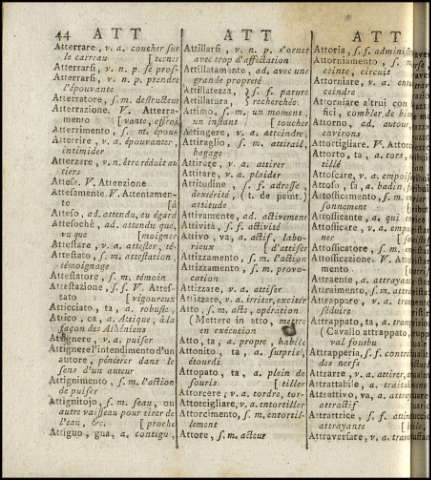 44 ATT
Atterrare, v. a. coucher sur
le carreau [tenner
Atterrarsi, v. n. p. se pros-
Atterrarsi, v. n. p. prendre
l'épouvante
Atterratore, s. m. destructeur
Atterrazione. V. Atterra-
mento
Atterrimento, s. m. épou-
Atterrire, v. a. épouvanter,
intimider
Atterzare, v. n. être réduit au
tiers
Attesa. V. Attenzione
Attesamente. V. Attentamen-
te [à
Atteso, ad. attendu, eu égard
Attesochè, ad. attendu que,
vu que [moigner
Attestare, v. a. attester, té-
Attestato, s. m. attestation,
témoignage
Attestatore, s. m. témoin
Attestazione, s. f. V. Attes-
tato [vigoureux
Atticciato, ta, a. robuste,
Attico, ca, a. Attique, à la
façon des Athéniens
Attignere, v. a. puiser
Attignere l'intendimento d'un
autore, pénétrer dans le
sens d'un auteur
Attignimento, s. m. l'action
de puiser
Attignitojo, s. m. seau, ou
autre vaisseau pour tirer de
l'eau, &c. [proche
Attiguo, gua, a. contigu,
ATT
Attillarsi, v. n. p. s'orner
avec trop d'affectation
Attillatamente, ad. avec une
grande propreté
Attillatezza, } s. f. parure
Attillatura, } recherchée
Attimo, s. m. un moment,
un instant [toucher
Attingere, v. a. atteindre,
Attiraglio, s. m. attirail,
bagage
Attirare, v. a. attirer
Attitare, v. a. plaider
Attitudine, s. f. adresse,
dextérité, (t. de peint.)
attitude
Attivamente, ad. activement
Attività, s. f. activité
Attivo, va, a. actif, labo-
rieux [d'attiser
Attizzamento, s. m. l'action
Attizzamento, s. m. provo-
cation
Attizzare, v. a. attiser
Attizzare, v. a. irriter, exciter
Atto, s. m. acte, opération
(Mettere in atto, mettre
en exécution
Atto, ta, a. propre, habile
Attonito, ta, a. surpris,
étourdi
Attopato, ta, a. plein de
souris [tiller
Attorcere, v. a. tordre, tor-
Attorcigliare, v. a. entortiller
Attorcimento, s. m. entortil-
lement
Attore, s. m. acteur
ATT
Attoria, s. f.
Attorniamento, s. m.
ceinte, circuit
Attorniare, v. a.
ceindre
Attorniare altrui con
fici, combler de
Attorno, ad. autour,
environs
Attortigliare. V.
Attorto, ta, a. tors,
tillé
Attoscare, v. a.
Attoso, sa, a. badin,
Attossicamento, s. m.
sonnement
Attossicante, a. qui
Attossicare, v. a.
Attossicatore, s. m.
Attossicazione. V.
mento
Attraente, a.
Attraimento, s. m.
Attrappare, v. a.
séduire
Attrappato, ta, a.
(Cavallo attrappato,
val fourbu
Attrapperia, s. f.
des nerfs
Attrarre, v. a. attirer,
Attrattabile, a.
Attrattivo, va, a.
attractif
Attrattrice, s. f.
attrayante
Attraversare, v. a.